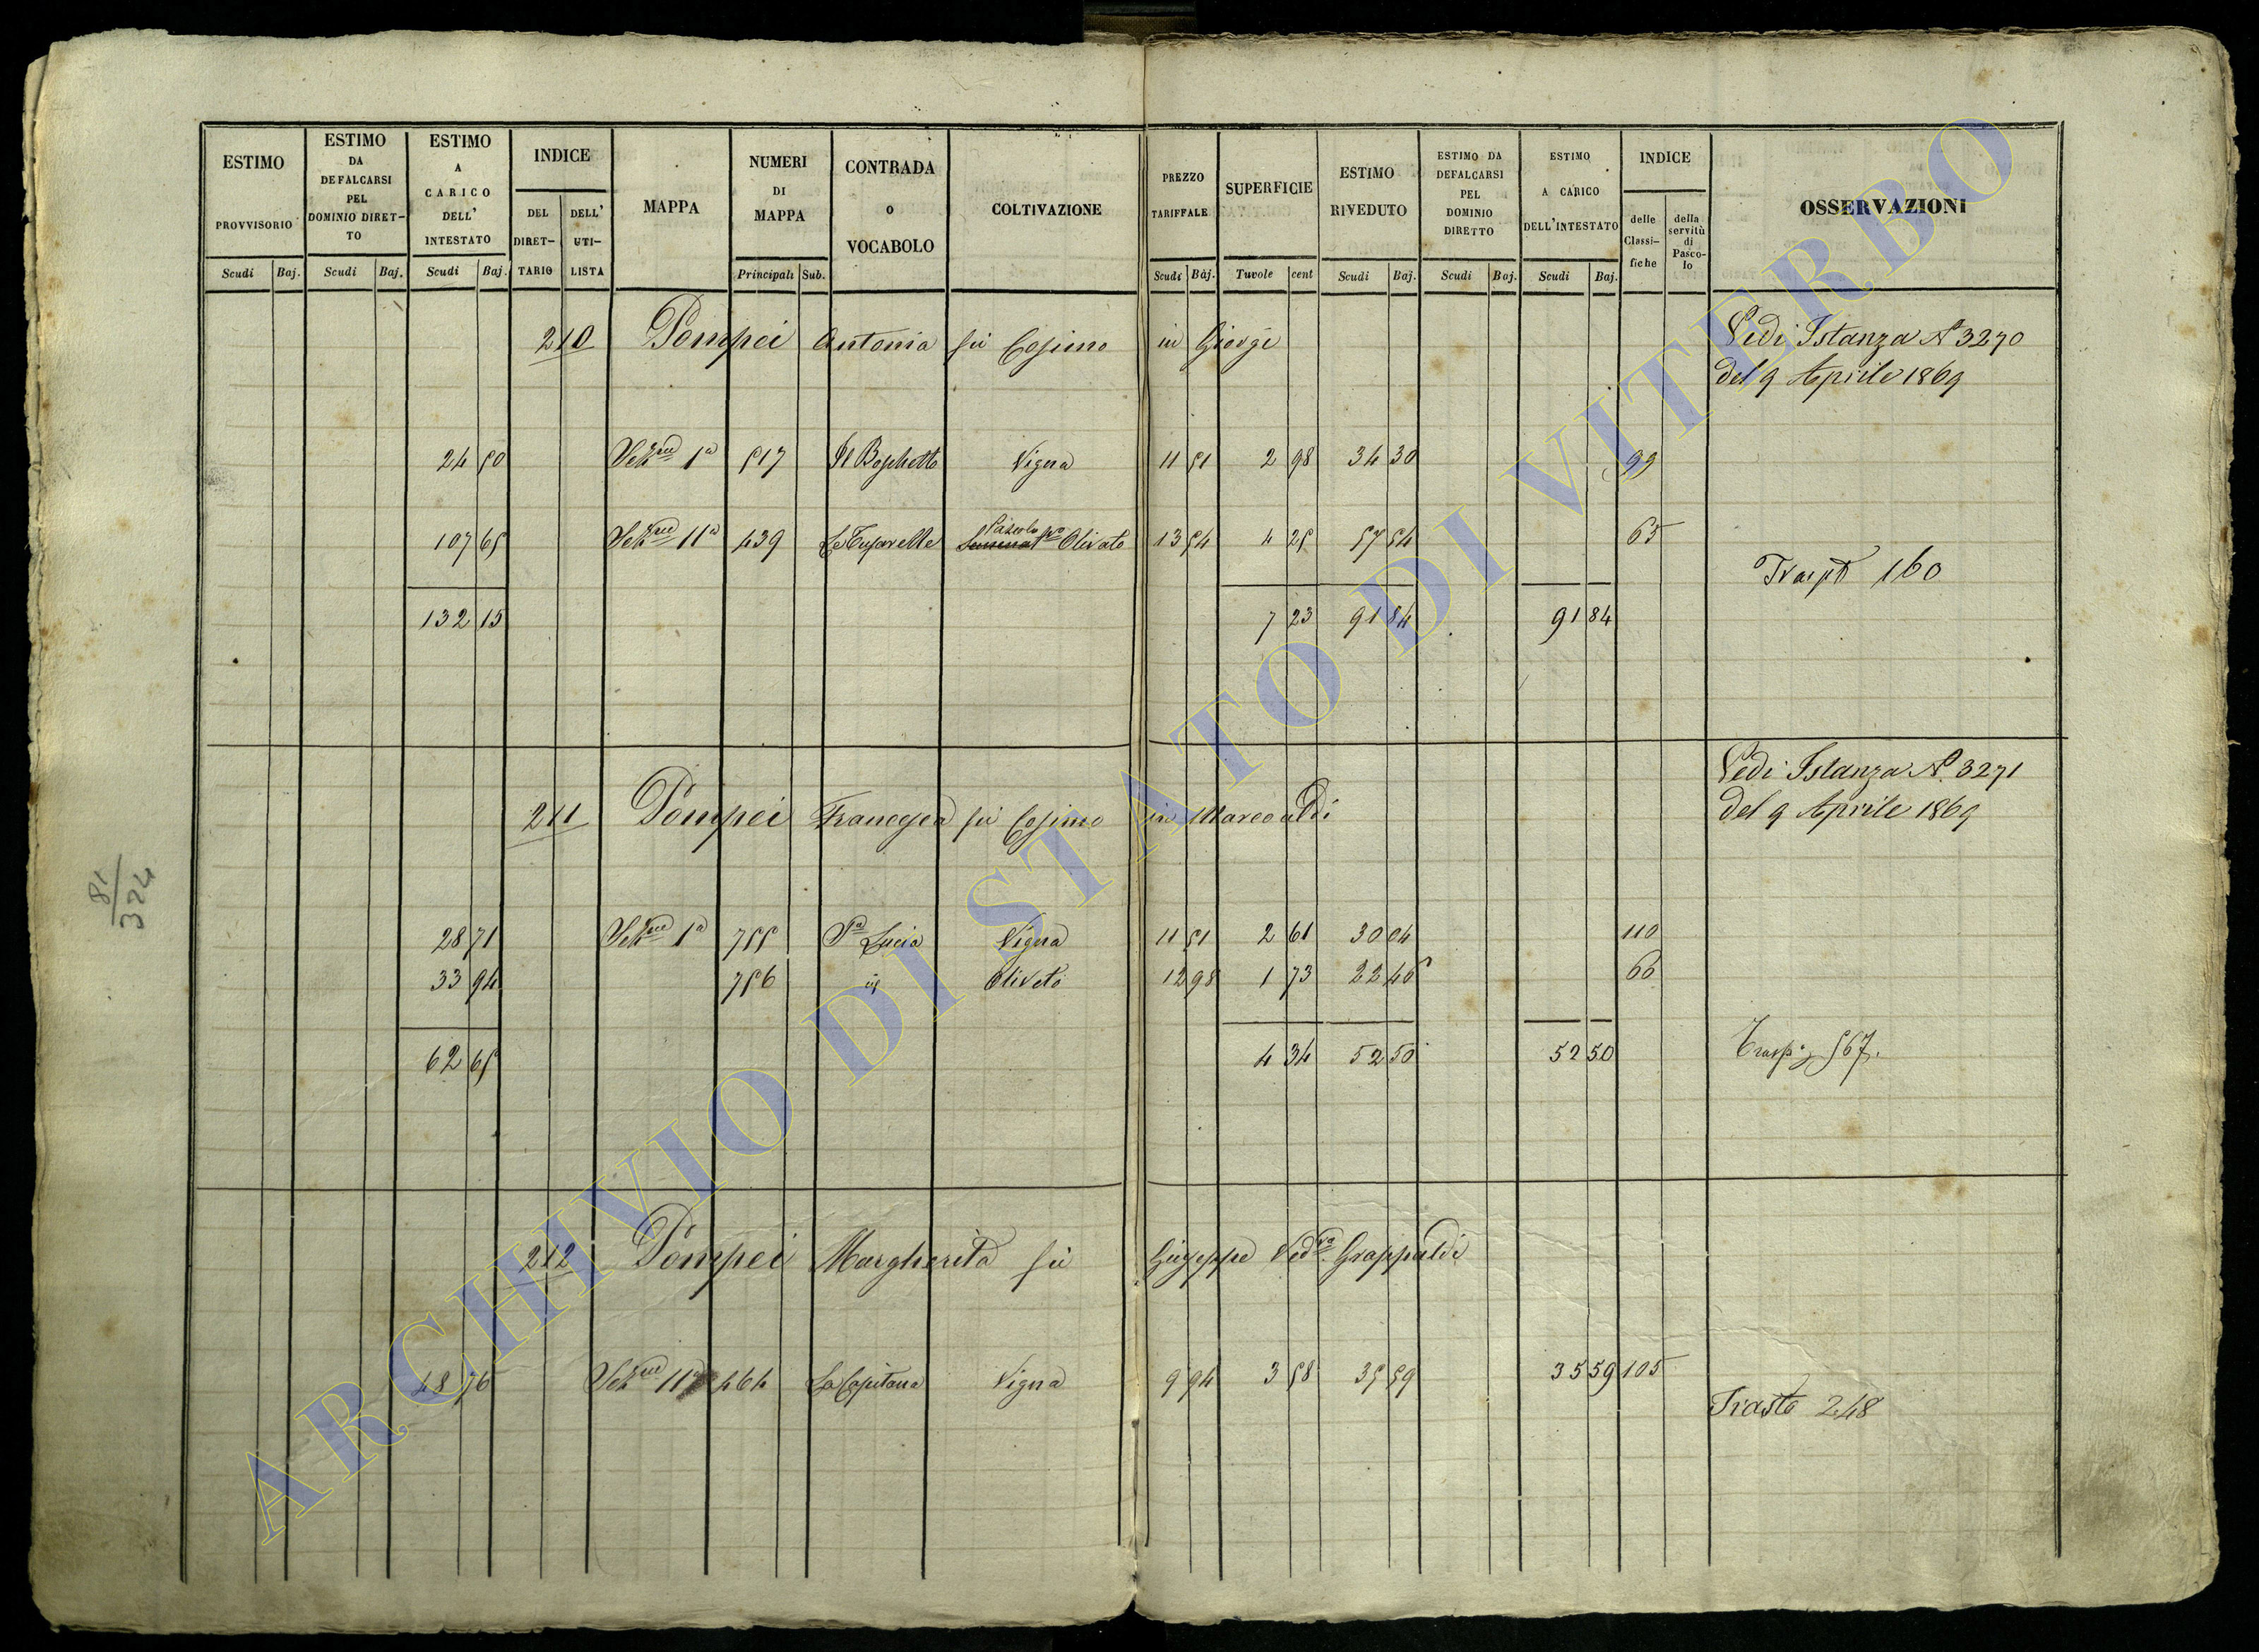 ESTIMO PROVVISORIO
ESTIMO DA DEFALCARSI PEL DOMINIO DIRET-TO
ESTIMO A CARICO DELL' INTESTATO
INDICE
DEL DIRET-TARIO
DELL' UTI-LISTA
MAPPA
NUMERI DI MAPPA
CONTRADA O VOCABOLO
COLTIVAZIONE
PREZZO TARIFFALE
SUPERFICIE
ESTIMO RIVEDUTO
ESTIMO DA DEFALCARSI PEL DOMINIO DIRETTO
ESTIMO A CARICO DELL'INTESTATO
INDICE
delle Classi-fiche
della servitù di Pasco-lo
OSSERVAZIONI
Scudi Baj. Scudi Baj. Scudi Baj. Principali Sub. Scudi Baj. Tavole cent Scudi Baj. Scudi Baj. Scudi Baj.
210 Pompei Antonia fù Cosimo in Giorgi
Vedi Istanza N 3270
del 9 Aprile 1869
24 50 Sezne 1a 517 Il Boschetto Vigna 11 51 2 98 34 30 99
107 65 Sezne 11a 439 Le Tufarelle Pascolo Olivato 13 54 4 25 57 54 65
Traspto 160
132 15 7 23 91 84 91 84
211 Pompei Francesca fù Cosimo in Marcoaldi
Vedi Istanza N 3271
del 9 Aprile 1869
28 71 Sezne 1a 755 Sa Lucia Vigna 11 51 2 61 30 04 110
33 94 756 id Oliveto 12 98 1 73 22 46 66
62 65 4 34 52 50 52 50 567.
212 Pompei Margherita fù Giuseppe Vedva Grappaldi
48 76 Sezne 11a 464 La Capitana Vigna 9 94 3 58 35 59 35 59 105
Trasto 248
81/324
ARCHIVIO DI STATO DI VITERBO